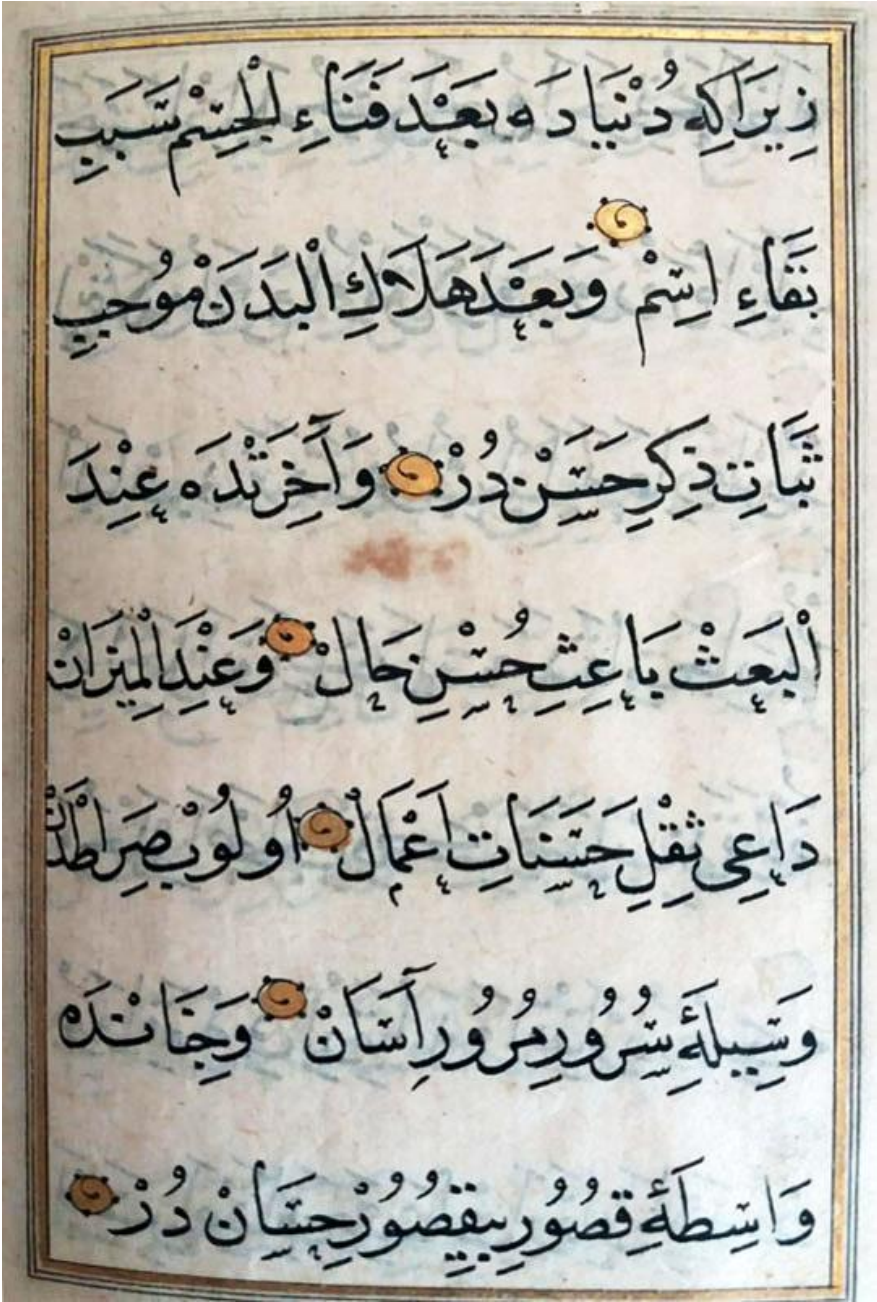 زِيرَاكِه دُنْيَادَه بَعْدَ فَنَاءِ الْجِسْمْ سَبَبِ
بَقَاءِ اِسِمْ وَبَعْدَ هَلَاكِ الْبَدَنْ مُوجِبِ
ثَبَاتِ ذِكْرِ حَسَنْ دُرْ وَآخِرَتْدَه عِنْدَ
الْبَعَثْ بَاعِثِ حُسْنِ حَالْ وَعِنْدَ الْمِيزَانْ
دَاعِئِ ثِقْلِ حَسَنَاتِ اَعْمَالْ اُولُوبْ صِرَاطْدَنْ
وَسِيلَۀِ سُرُورِ مُرُورِ آسَانْ وَجِنَانْدَه
وَاسِطَۀِ قُصُورِ بِيقُصُورِ حِسَانْ دُرْ